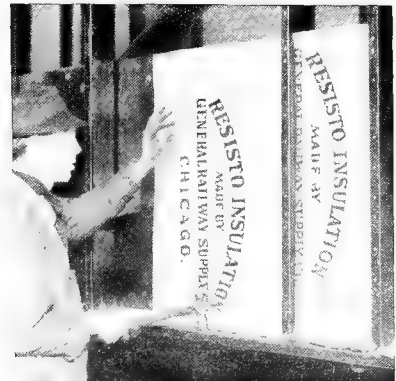 RESISTO INSULATION
MADE BY
GENERAL RAILWAY SUPPLY
CHICAGO.
RESISTO INSULATION
MADE BY
GENERAL RAILWAY SUPPLY